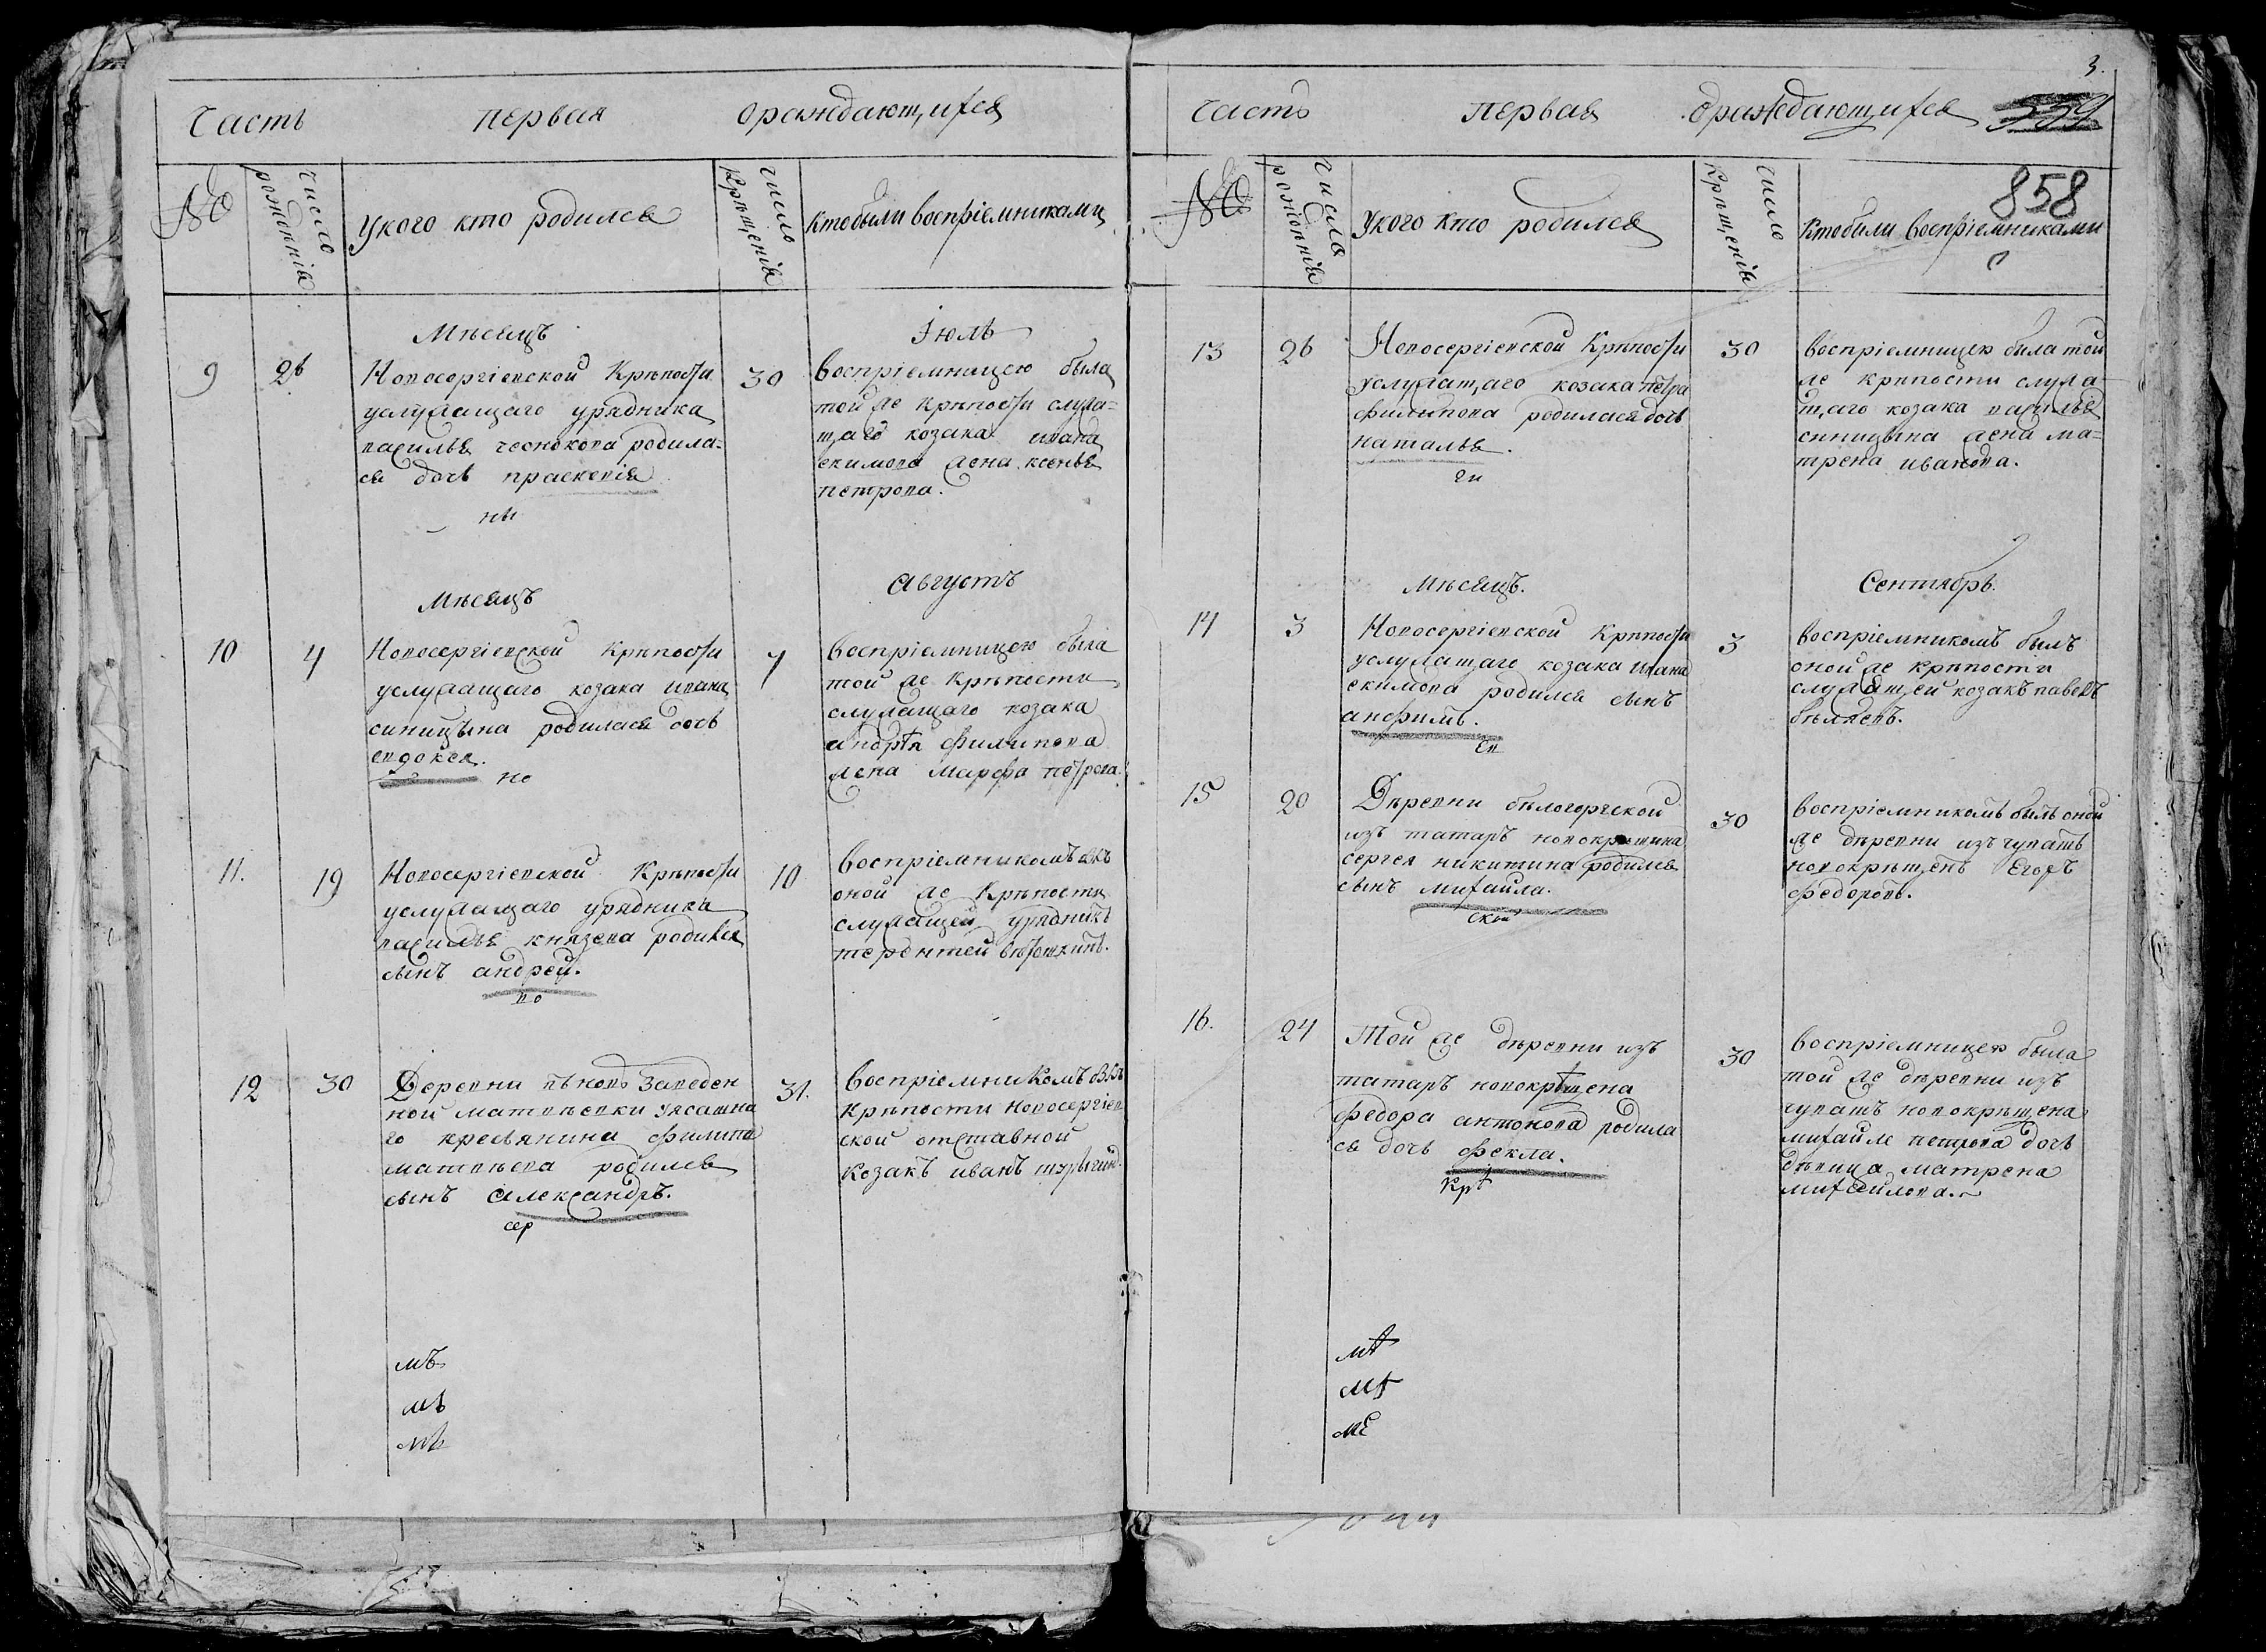 Часть первая ораждающихся
№
число рожденнія
У кого кто родился
число крещенія
Кто были воспріемниками
Мѣсяцъ Іюль
9 26
Новосергіевской Крѣпости
услужащаго урядника
василья чеснокова родила=
ся дочь праскевія
ны
30
воспріемницею была
той же крѣпости служа=
щаго козака ивана
екимова жена ксенья
петрова.
Мѣсяцъ Августъ
10 4
Новосергіевской Крѣпости
услужащаго козака ивана
синицына родилася дочь
евдокея.
но
7
воспріемницею была
той же Крѣпости
служащаго козака
андрѣя филипова
жена марфа петрова.
11. 19
Новосергіевской Крѣпости
услужащаго урядника
василья князева родился
сынъ андрей.
во
10
воспріемникомъ былъ
оной же Крѣпости
служащей урядникъ
терентей
12 30
Деревни вновь Заведен
ной матвѣевки уясашна
го кресьянина филипа
матвѣева родился
сынъ Александръ.
сер
31.
воспріемникомъ былъ
Крѣпости новосергіев
ской отставной
Козакъ иванъ
мѣ
мѣ
мѣ
3.
Часть первая ораждающихся 559
858
№
числа рожденнія
У кого кто родился
число крещенія
Кто были воспріемниками
13 26
Новосергіевской Крѣпости
услужащаго козака петра
филипова родилася дочь
наталья.
ги
30
воспріемницею была той
же крѣпости служа
щаго козака василья
синицына жена ма=
трена иванова.
Мѣсяцъ. Сентябрь.
14 3
Новосергіевской Крѣпости
услужащаго козака ивана
екимова родился сынъ
анфимъ.
ев
3
воспріемникомъ былъ
оной же крѣпости
служащей козакъ павелъ
бѣляевъ.
15 20
Дѣревни бѣлогорской
изъ татаръ новокрещина
сергея никитина родился
сынъ михайла.
ской
30
воспріемникомъ былъ оной
же дѣревни изъ чувашъ
новокрѣщенъ Егоръ
федоровъ.
16. 24
Той же дѣревни изъ
татаръ новокрѣщена
федора антонова родила
ся дочь фекла.
крѣ
30
воспріемницею была
той же дѣревни изъ
чувашъ новокрѣщена
михайле петрова дочь
дѣвица матрена
михайлова.
мѣ
мѣ
мѣ